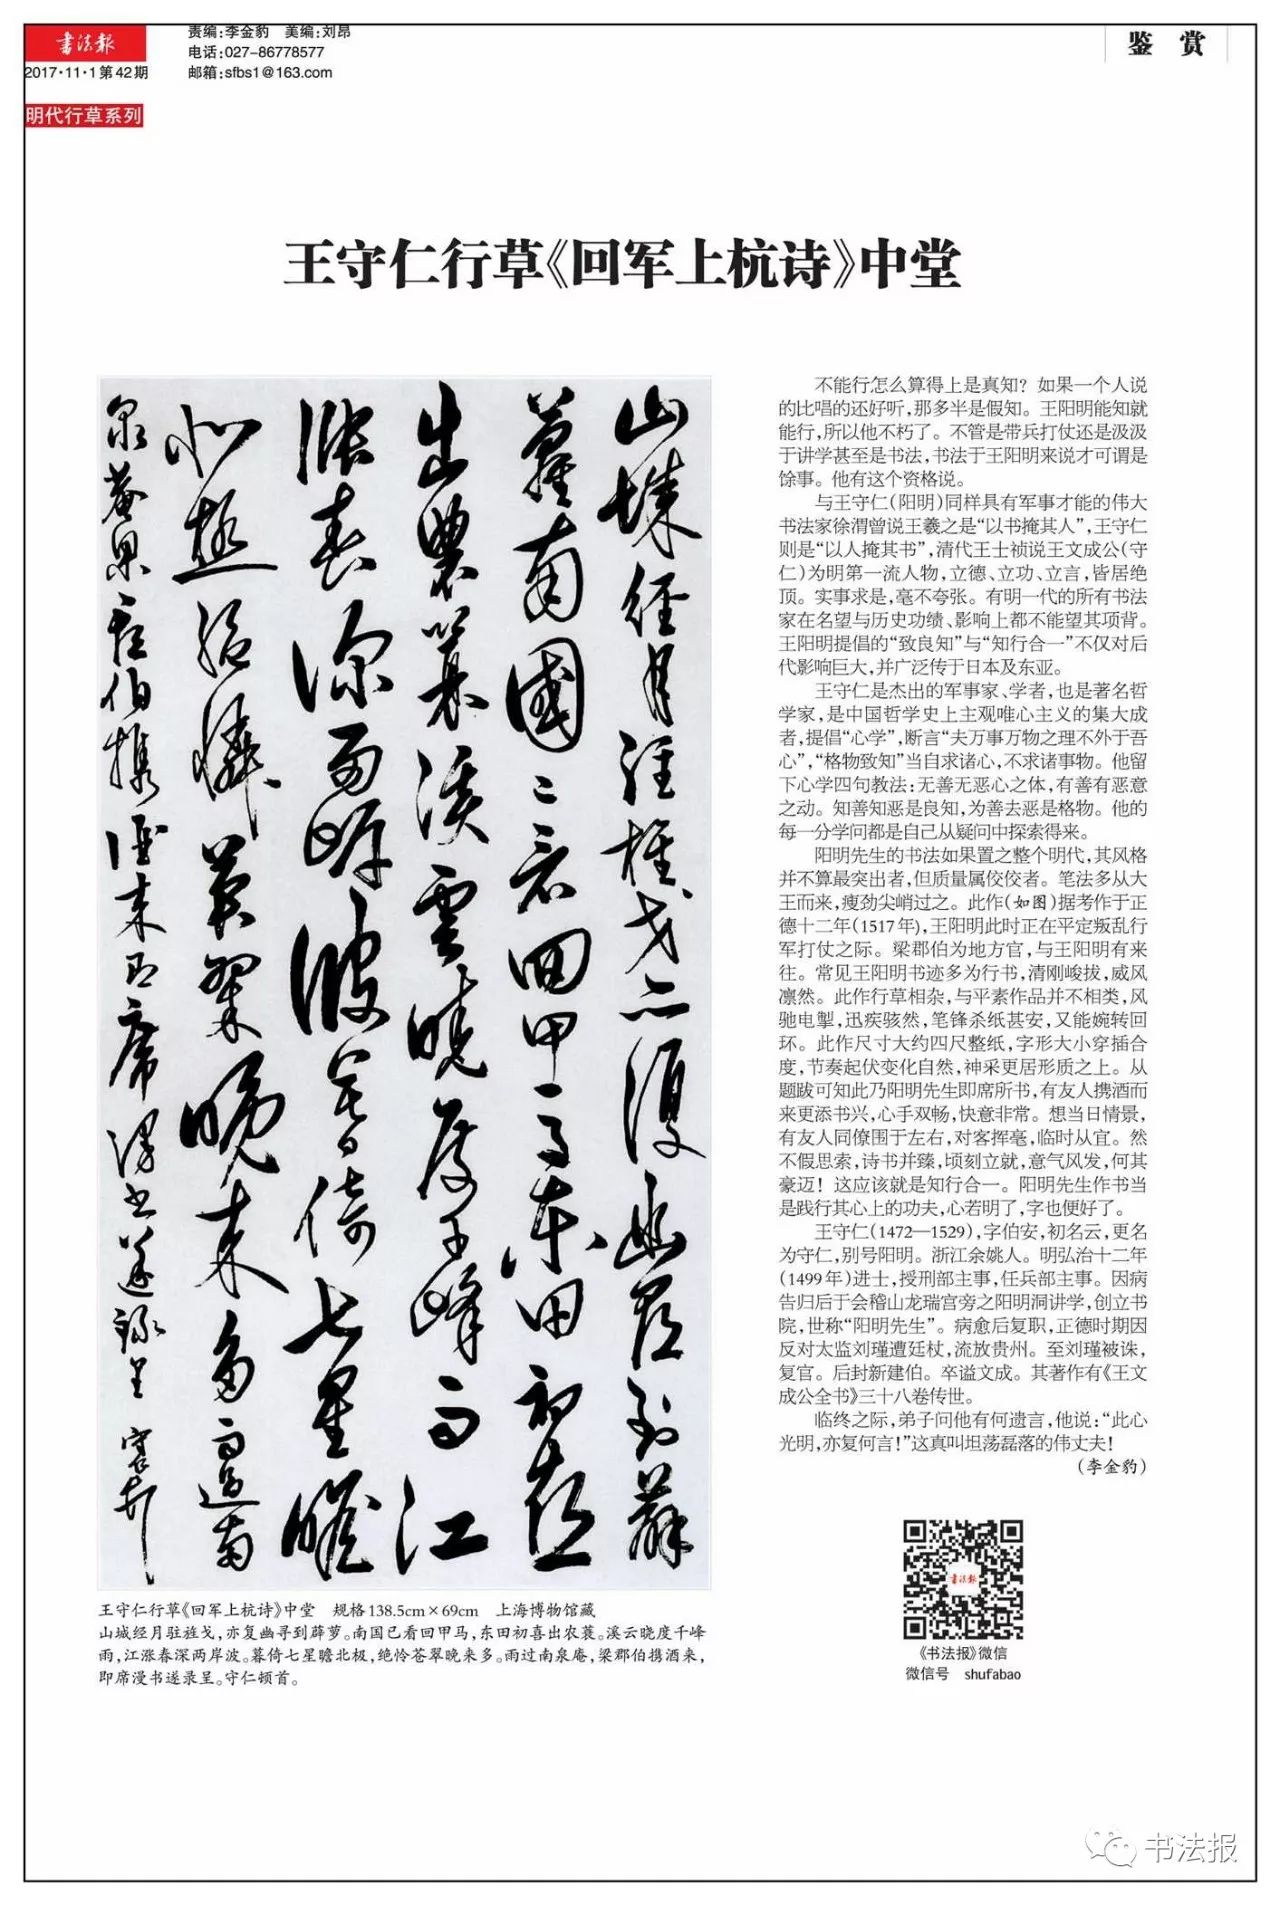 书法报
2017·11·1第42期
责编:李金豹 美编:刘昂
电话:027-86778577
邮箱:sfbs1@163.com
鉴 赏
明代行草系列
王守仁行草《回军上杭诗》中堂
山城经月驻旌戈亦复幽寻到薜
萝南国已看回甲马东田初喜
出农蓑溪云晓度千峰雨江
涨春深两岸波暮倚七星瞻
北极绝怜苍翠晚来多雨过南
泉庵梁郡伯携酒来即席漫书遂录呈 守仁顿首
王守仁行草《回军上杭诗》中堂 规格138.5cm×69cm 上海博物馆藏
山城经月驻旌戈,亦复幽寻到薜萝。南国已看回甲马,东田初喜出农蓑。溪云晓度千峰
雨,江涨春深两岸波。暮倚七星瞻北极,绝怜苍翠晚来多。雨过南泉庵,梁郡伯携酒来,
即席漫书遂录呈。守仁顿首。
不能行怎么算得上是真知?如果一个人说
的比唱的还好听,那多半是假知。王阳明能知就
能行,所以他不朽了。不管是带兵打仗还是汲汲
于讲学甚至是书法,书法于王阳明来说才可谓是
馀事。他有这个资格说。
与王守仁(阳明)同样具有军事才能的伟大
书法家徐渭曾说王羲之是“以书掩其人”,王守仁
则是“以人掩其书”,清代王士祯说王文成公(守
仁)为明第一流人物,立德、立功、立言,皆居绝
顶。实事求是,毫不夸张。有明一代的所有书法
家在名望与历史功绩、影响上都不能望其项背。
王阳明提倡的“致良知”与“知行合一”不仅对后
代影响巨大,并广泛传于日本及东亚。
王守仁是杰出的军事家、学者,也是著名哲
学家,是中国哲学史上主观唯心主义的集大成
者,提倡“心学”,断言“夫万事万物之理不外于吾
心”,“格物致知”当自求诸心,不求诸事物。他留
下心学四句教法:无善无恶心之体,有善有恶意
之动。知善知恶是良知,为善去恶是格物。他的
每一分学问都是自己从疑问中探索得来。
阳明先生的书法如果置之整个明代,其风格
并不算最突出者,但质量属佼佼者。笔法多从大
王而来,瘦劲尖峭过之。此作(如图)据考作于正
德十二年(1517年),王阳明此时正在平定叛乱行
军打仗之际。梁郡伯为地方官,与王阳明有来
往。常见王阳明书迹多为行书,清刚峻拔,威风
凛然。此作行草相杂,与平素作品并不相类,风
驰电掣,迅疾骇然,笔锋杀纸甚安,又能婉转回
环。此作尺寸大约四尺整纸,字形大小穿插合
度,节奏起伏变化自然,神采更居形质之上。从
题跋可知此乃阳明先生即席所书,有友人携酒而
来更添书兴,心手双畅,快意非常。想当日情景,
有友人同僚围于左右,对客挥毫,临时从宜。然
不假思索,诗书并臻,顷刻立就,意气风发,何其
豪迈!这应该就是知行合一。阳明先生作书当
是践行其心上的功夫,心若明了,字也便好了。
王守仁(1472—1529),字伯安,初名云,更名
为守仁,别号阳明。浙江余姚人。明弘治十二年
(1499年)进士,授刑部主事,任兵部主事。因病
告归后于会稽山龙瑞宫旁之阳明洞讲学,创立书
院,世称“阳明先生”。病愈后复职,正德时期因
反对太监刘瑾遭廷杖,流放贵州。至刘瑾被诛,
复官。后封新建伯。卒谥文成。其著作有《王文
成公全书》三十八卷传世。
临终之际,弟子问他有何遗言,他说:“此心
光明,亦复何言!”这真叫坦荡磊落的伟丈夫!
(李金豹)
书法报
《书法报》微信
微信号 shufabao
书法报